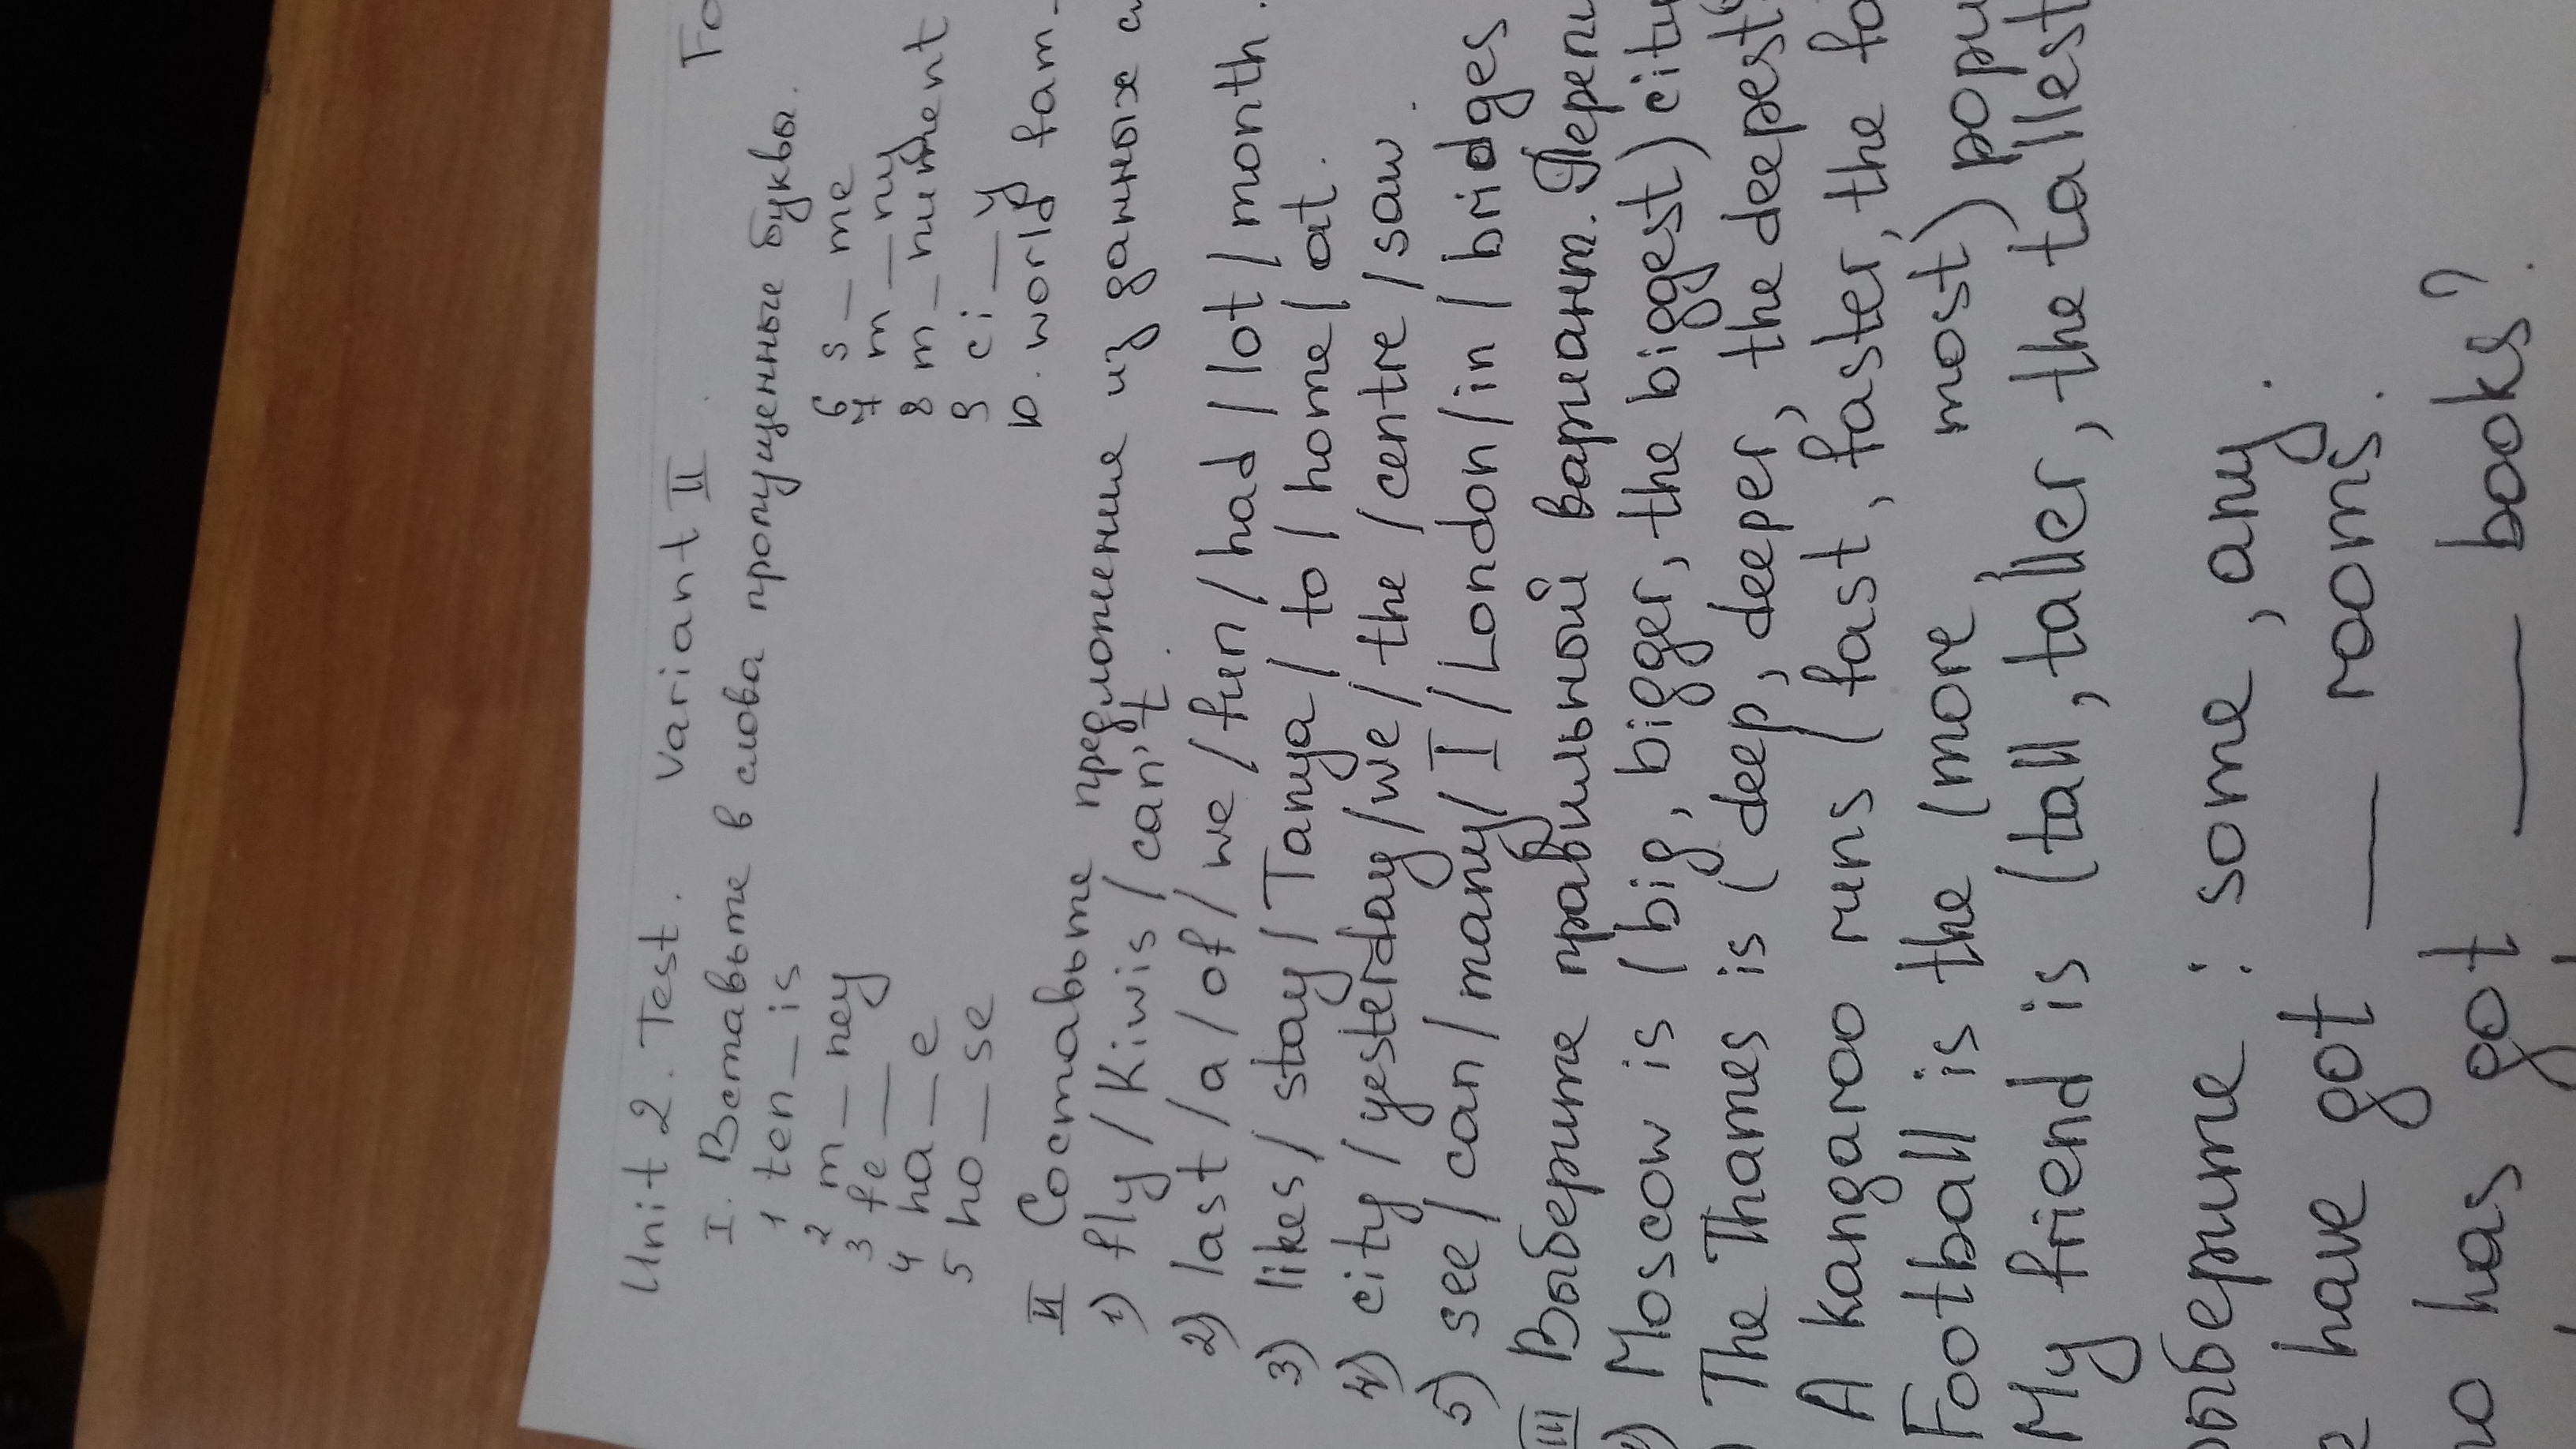 Unit 2. Test. Variant II
I. Вставьте в слова пропущенные буквы.
1 ten_is 6 s_me
2 m_ney 7 m_ny
3 fe__ 8 m_nument
4 ha_e 9 ci_y
5 ho_se 10. world fam-
II Составьте предложение из данных
1) fly / Kiwis / can't.
2) last / a / of / we / fun / had / lot / month.
3) likes / stay / Tanya / to / home / at.
4) city / yesterday / we / the / centre / saw.
5) see / can / many / I / London / in / bridges
III Выберите правильный вариант.
1) Moscow is (big, bigger, the biggest) city
The Thames is (deep, deeper, the deepest
A kangaroo runs (fast, faster, the fa
Football is the (more most) popu
My friend is (tall, taller, the tallest
: some, any.
have got __ rooms.
has got ___ books?